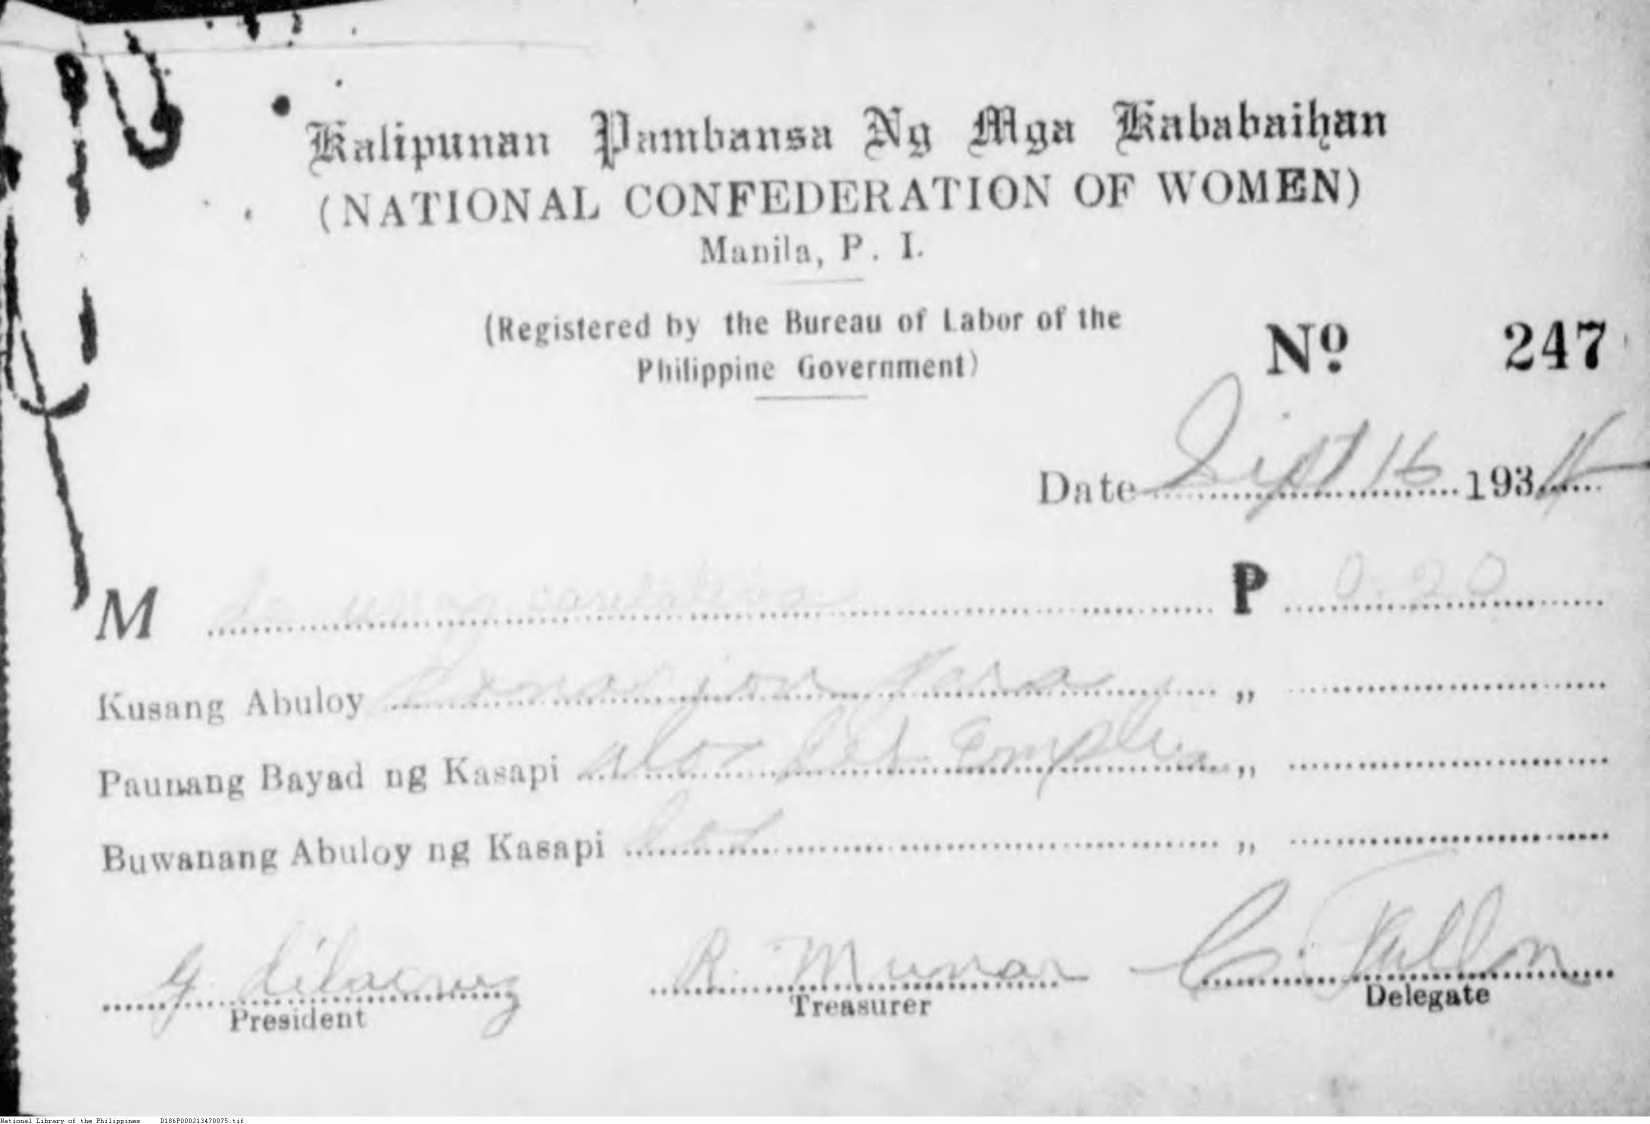 Kalipunan Pambansa Ng Mga Kababaihan
(NATIONAL CONFEDERATION OF WOMEN)
Manila, P. I.
(Registered by the Bureau of Labor of the
Philippine Government)
No. 247
Date Sept 16 1934
M P 0.20
Kusang Abuloy Donacion para „
Paunang Bayad ng Kasapi „
Buwanang Abuloy ng Kasapi „
R. Munar C. Fullon
President Treasurer Delegate
National Library of the Philippines D186P000213470075.tif